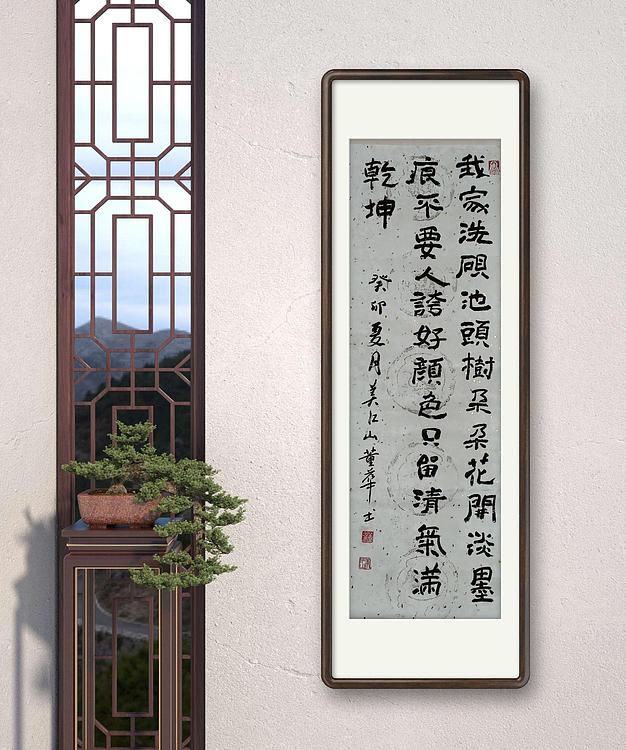 我家洗硯池頭樹朵朵花開淡墨
痕不要人誇好顏色只留清氣滿
乾坤
癸卯夏月美江山董華